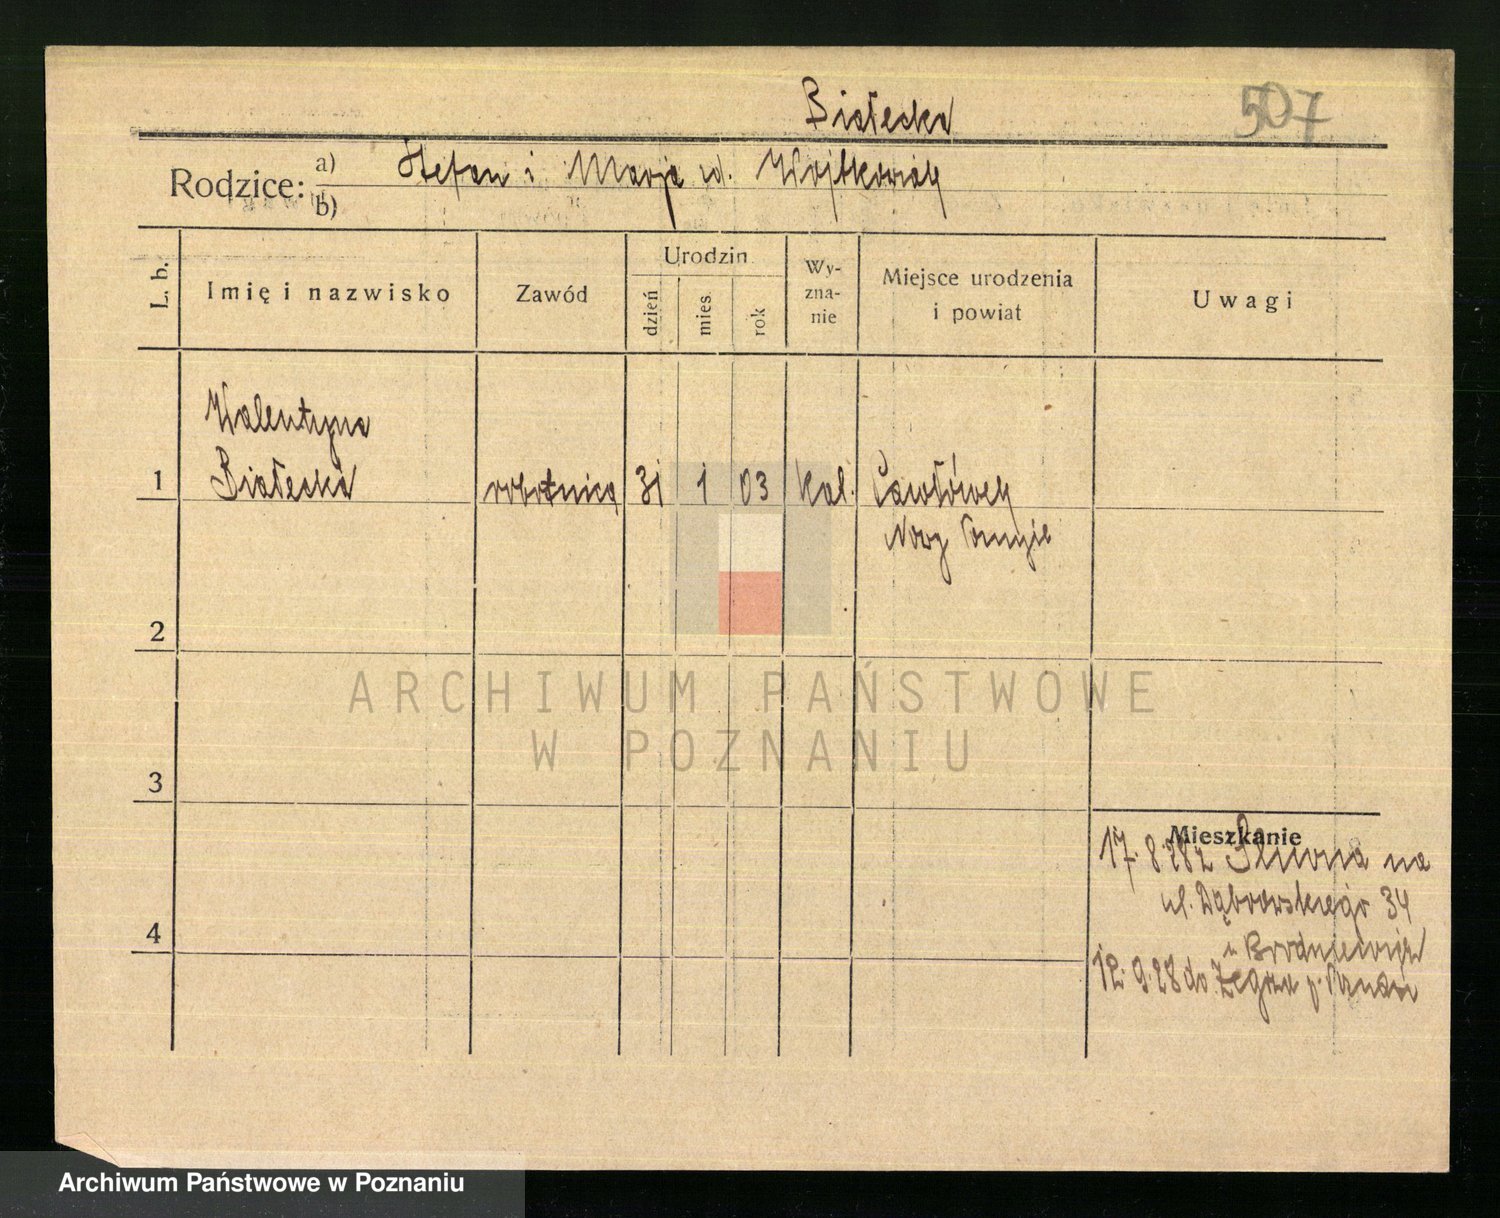 Białecka
507
Rodzice:
a) Stefan i Marja
b)
L. b.
Imię i nazwisko
Zawód
Urodzin
dzień
mies.
rok
Wy-
zna-
nie
Miejsce urodzenia
i powiat
Uwagi
Walentyna
1 Białecka robotnica 31 1 03 kat.
Nowy Tomyśl
2
3
4
Mieszkanie
17.8.28 z na
ul. Dąbrowskiego 34
12.9.28 do Żegrza p.
ARCHIWUM PAŃSTWOWE
W POZNANIU
Archiwum Państwowe w Poznaniu